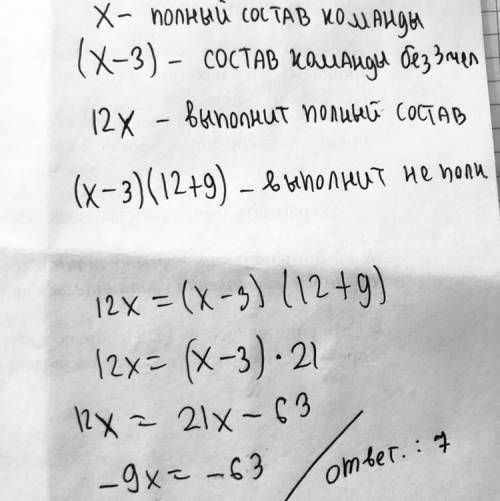 x – полный состав команды
(x–3) – состав команды без 3 чел
12x – выполнит полный состав
(x–3)(12+9) – выполнит не полн
12x = (x–3) (12+9)
12x = (x–3) · 21
12x = 21x – 63
–9x = –63 / ответ. : 7